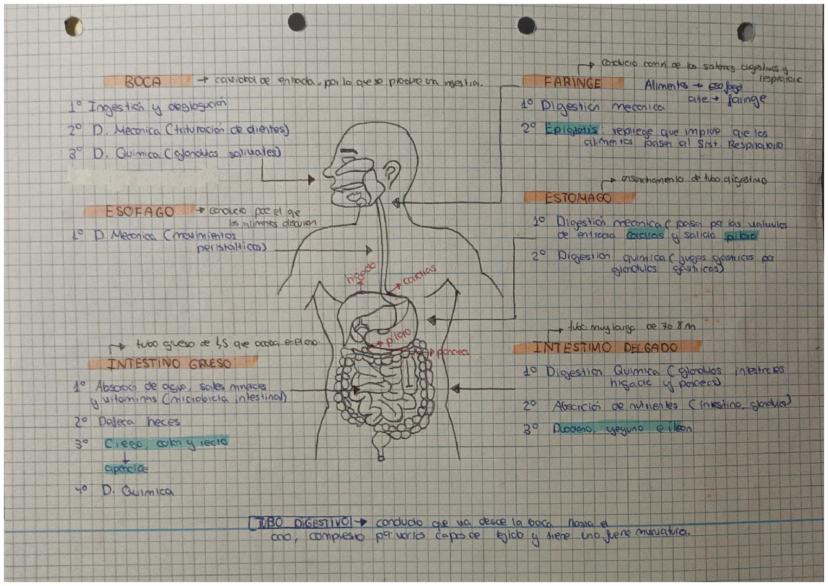 BOCA → cavidad de entrada, por lo que se produce un ingestión.
1º Ingestión y deglución
2º D. Mecánica (trituración de dientes)
3º D. Química (glándulas salivales)
ESOFAGO → conducto por el que
los alimentos discurren
1º D. Mecánica (movimientos
peristálticos)
→ tubo grueso de 1,5 que acaba en el ano
INTESTINO GRUESO
1º Absorción de agua, sales minerales
y vitaminas (microbiota intestinal)
2º Defeca heces
3º Ciego, colon y recto
apéndice
4º D. Química
hígado
cardias
píloro
páncreas
→ conducto común de los sistemas digestivo y
respiratorio
FARINGE Alimentos → esófago
aire → faringe
1º Digestión mecánica
2º Epiglotis: repliegue que impide que los
alimentos pasen al Sist. Respiratorio
→ ensanchamiento de tubo digestivo
ESTOMAGO
1º Digestión mecánica (pasan por las válvulas
de entrada cardias y salida píloro
2º Digestión química (jugos gástricos por
glándulas gástricas)
→ tubo muy largo de 7 o 8 m
INTESTIMO DELGADO
1º Digestión Química (glándulas intestinales
hígado y páncreas)
2º Absorción de nutrientes (intestino, glándulas)
3º Duodeno, yeyuno e íleon
TUBO DIGESTIVO → conducto que va desde la boca hasta el
ano, compuesto por varias capas de tejido y tiene una fuerte musculatura.